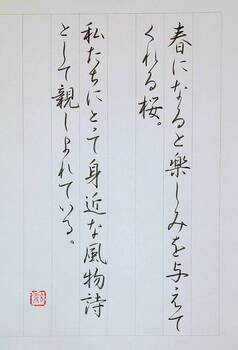 春になると楽しみを与えて
くれる桜。
私たちにとって身近な風物詩
として親しまれている。